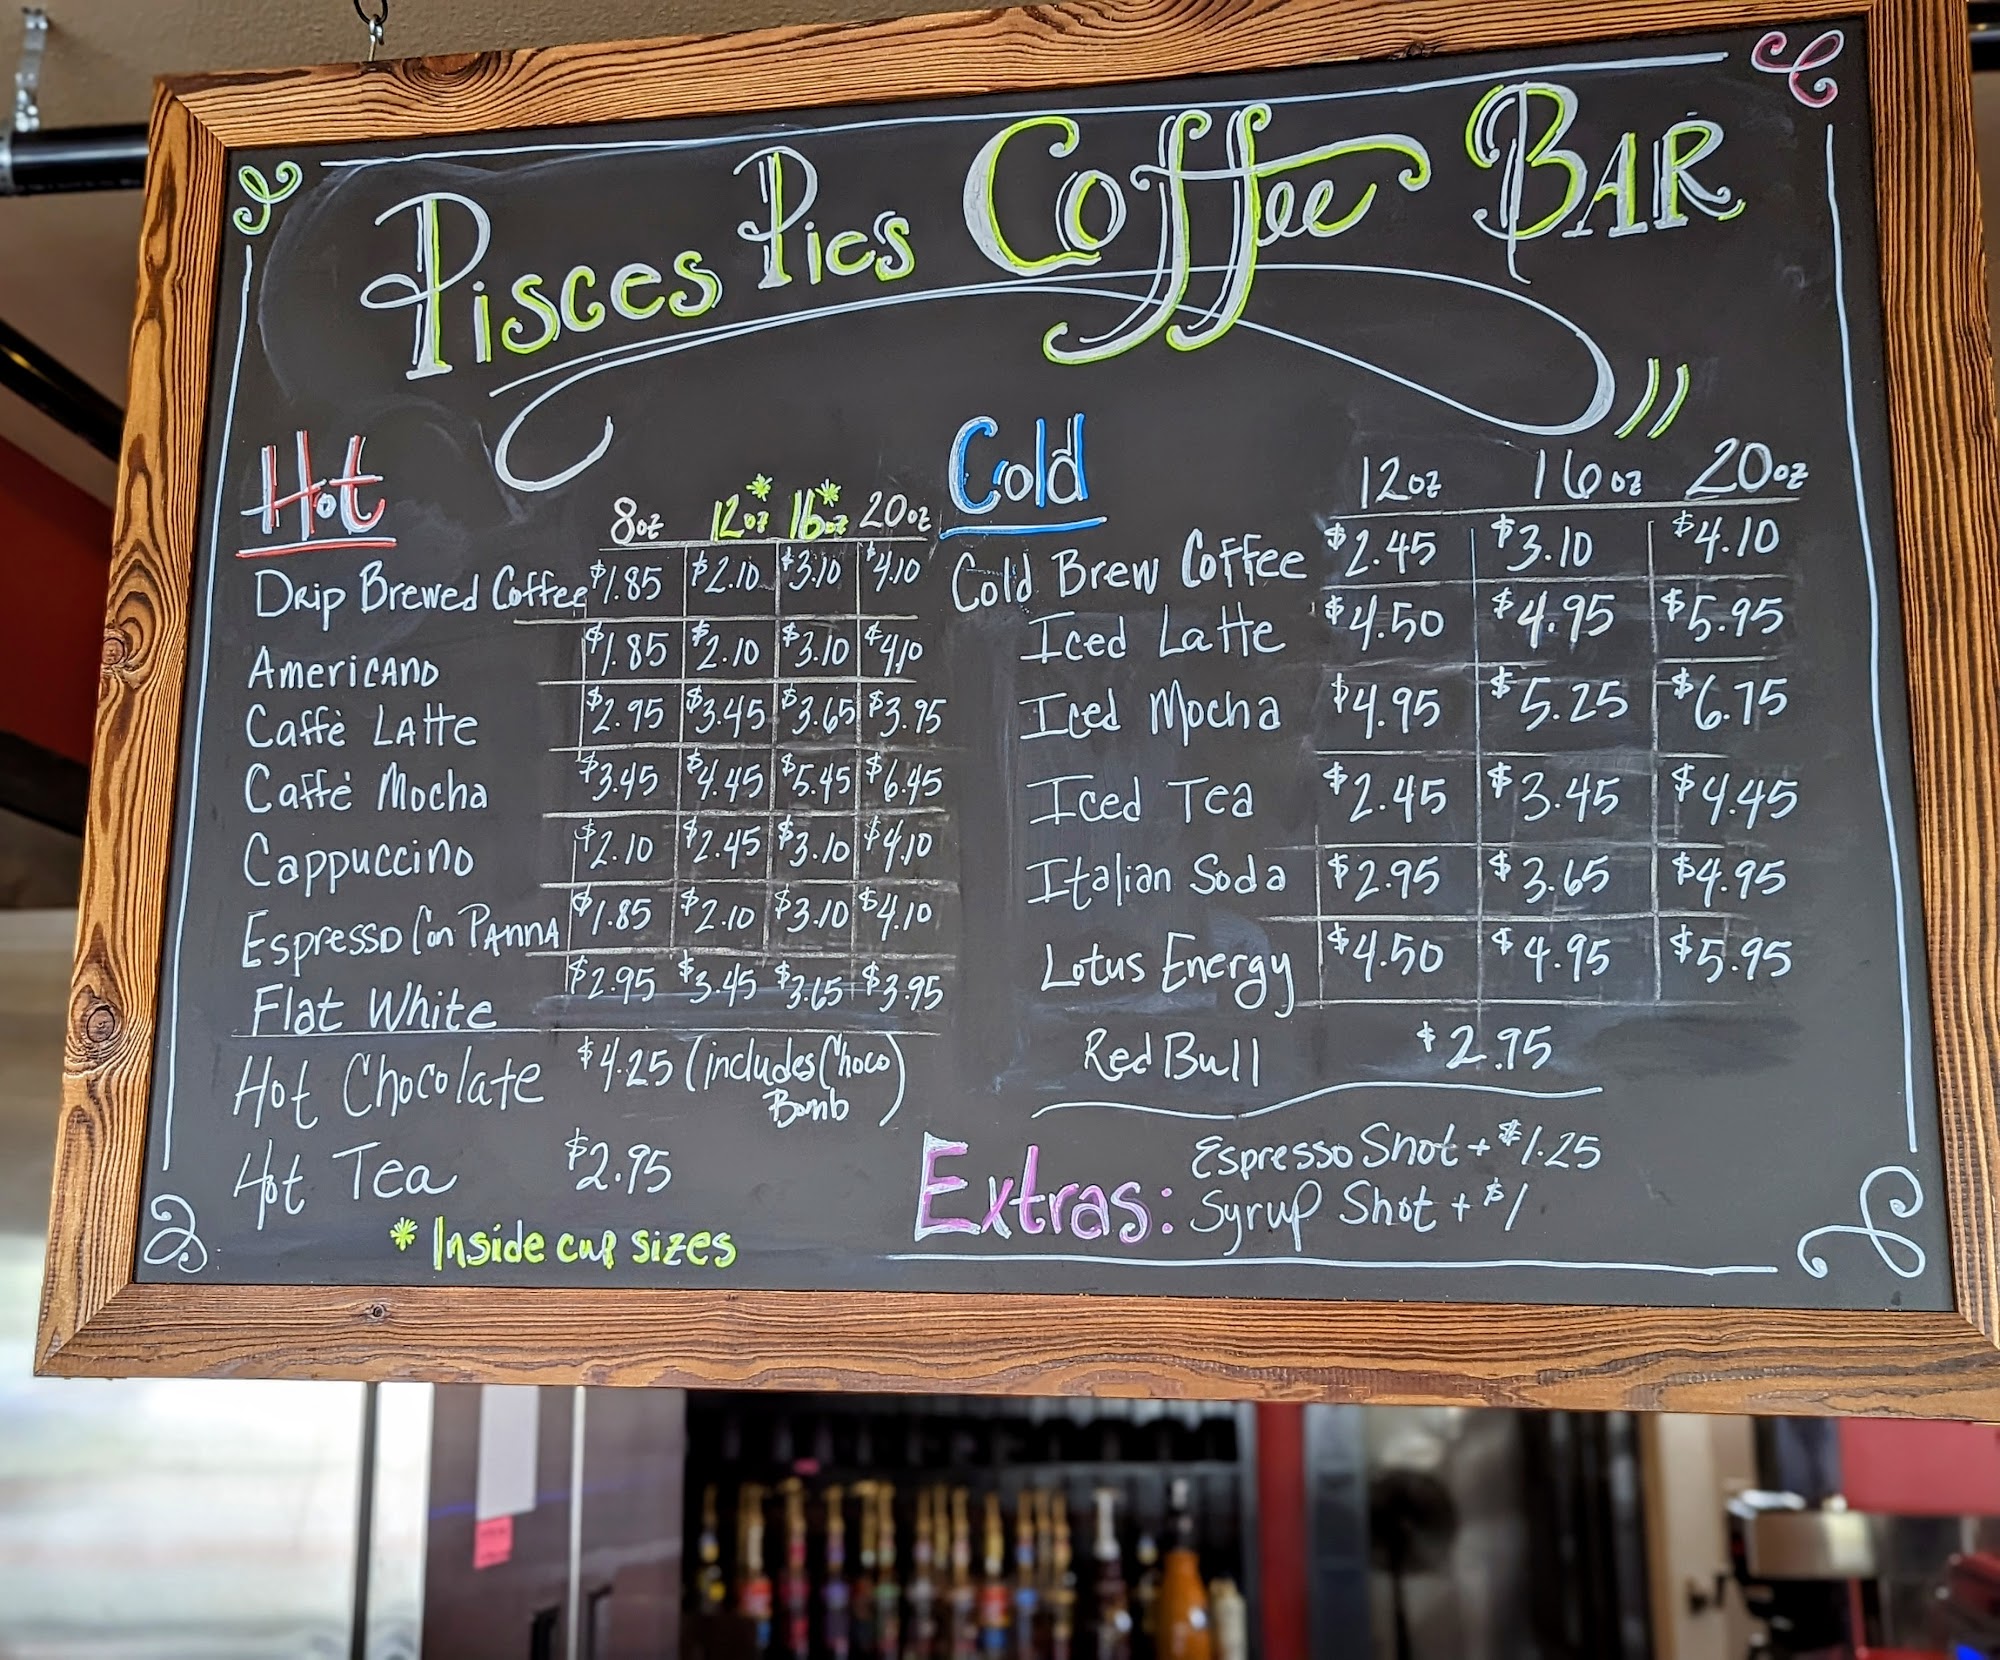 Pisces Pie's Coffee Bar
Hot
8oz 12oz* 16oz* 20oz
Drip Brewed Coffee $1.85 $2.10 $3.10 $4.10
Americano $1.85 $2.10 $3.10 $4.10
Caffè Latte $2.95 $3.45 $3.65 $3.95
Caffè Mocha $3.45 $4.45 $5.45 $6.45
Cappuccino $2.10 $2.45 $3.10 $4.10
Espresso Con Panna $1.85 $2.10 $3.10 $4.10
Flat White $2.95 $3.45 $3.65 $3.95
Hot Chocolate $4.25 (includes Choco
Bomb)
Hot Tea $2.95
* Inside cup sizes
Cold
12oz 16oz 20oz
Cold Brew Coffee $2.45 $3.10 $4.10
Iced Latte $4.50 $4.95 $5.95
Iced Mocha $4.95 $5.25 $6.75
Iced Tea $2.45 $3.45 $4.45
Italian Soda $2.95 $3.65 $4.95
Lotus Energy $4.50 $4.95 $5.95
Red Bull $2.95
Extras: Espresso Shot + $1.25
Syrup Shot + $1